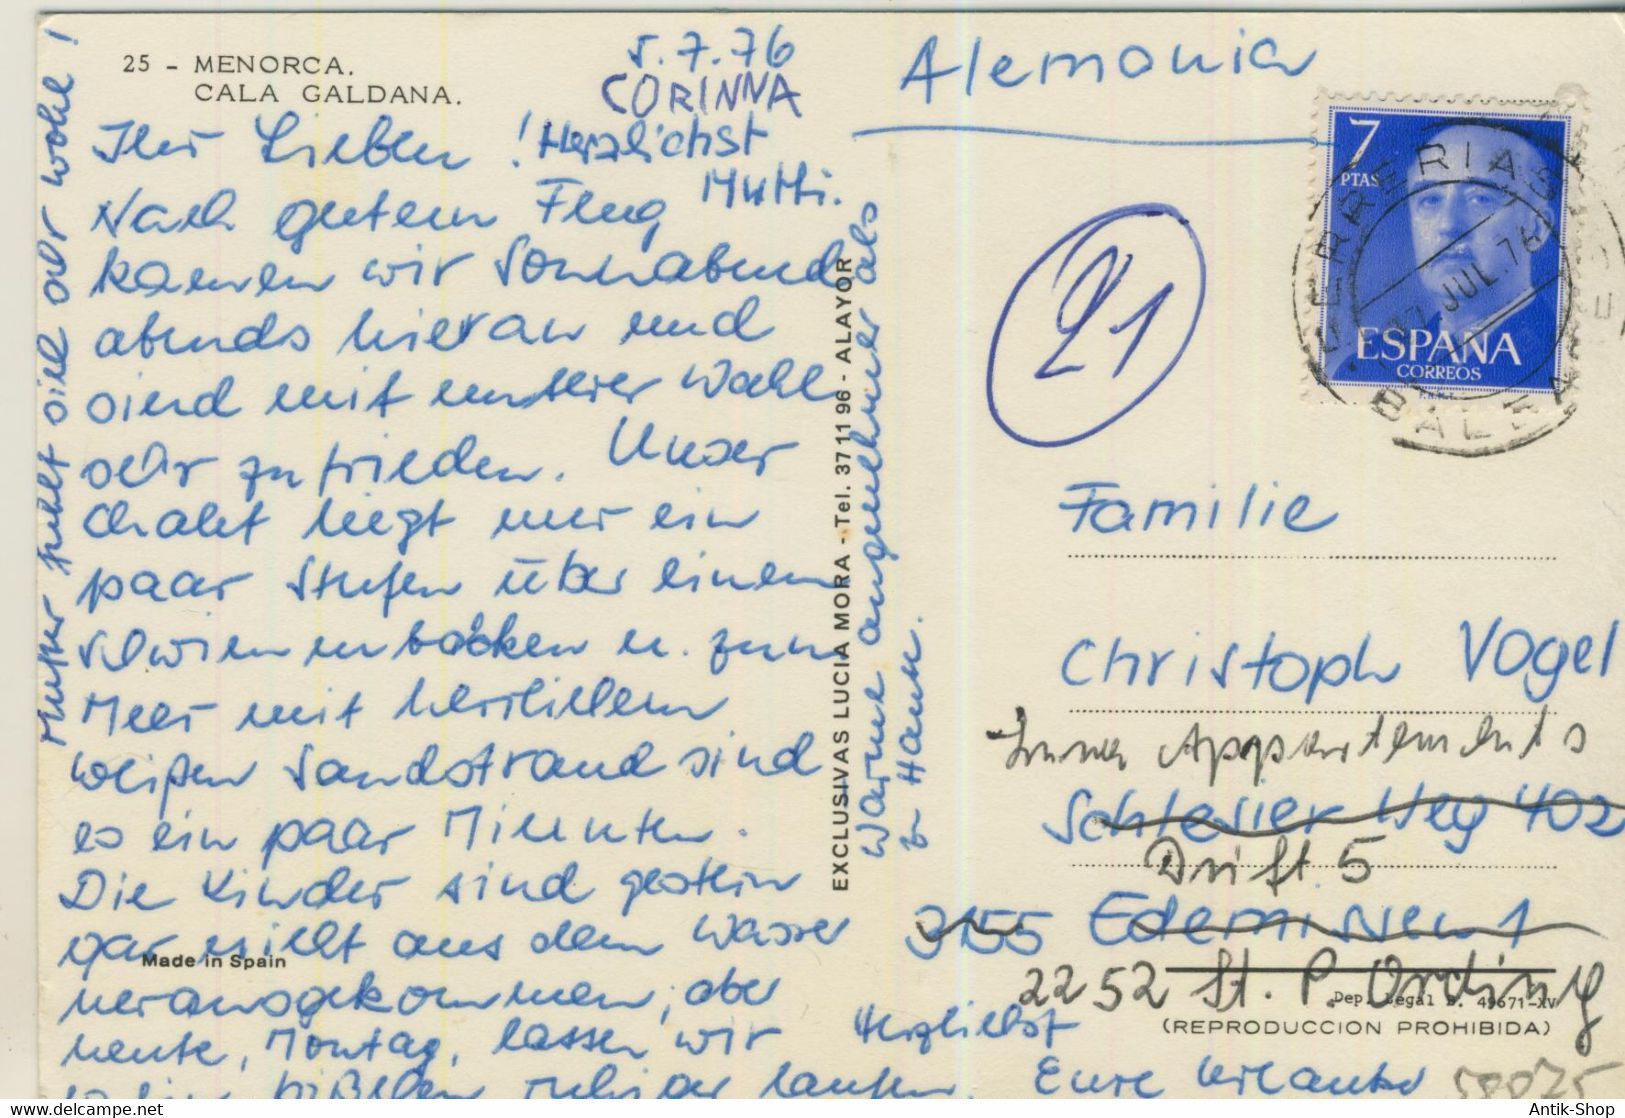 25 - MENORCA.
CALA GALDANA.
5.7.76
CORINNA
Ihr Lieben! Herzlichst
Mutti.
Nach gutem Flug
kamen wir Sonnabend
abends hier an und
sind mit unserer Wahl
sehr zufrieden. Unser
Chalet liegt nur ein
paar Stufen über einem
Schwimmbecken u. zum
Meer mit herrlichem
weißen Sandstrand sind
es ein paar Minuten.
Die Kinder sind gestern
gar nicht aus dem Wasser
herausgekommen, aber
heute, Montag, lassen wir
bißchen ruhiger laufen.
Herzlichst
Eure Urlauber
Mutter fühlt sich sehr wohl!
Wärme angenehmer als
zu Hause.
EXCLUSIVAS LUCIA MORA - Tel. 37 11 96 - ALAYOR
Made in Spain
Alemania
21
7
PTAS
ESPAÑA
CORREOS
F.N.M.T.
FERRERIAS
JUL. 76
BALEARES
Familie
Christoph Vogel
Appartements
Schlesier Weg 40a
Drift 5
3155 Edemissen 1
2252 St. P. Ording
Dep. Legal B. 49671-XV
(REPRODUCCION PROHIBIDA)
58075
Antik-Shop